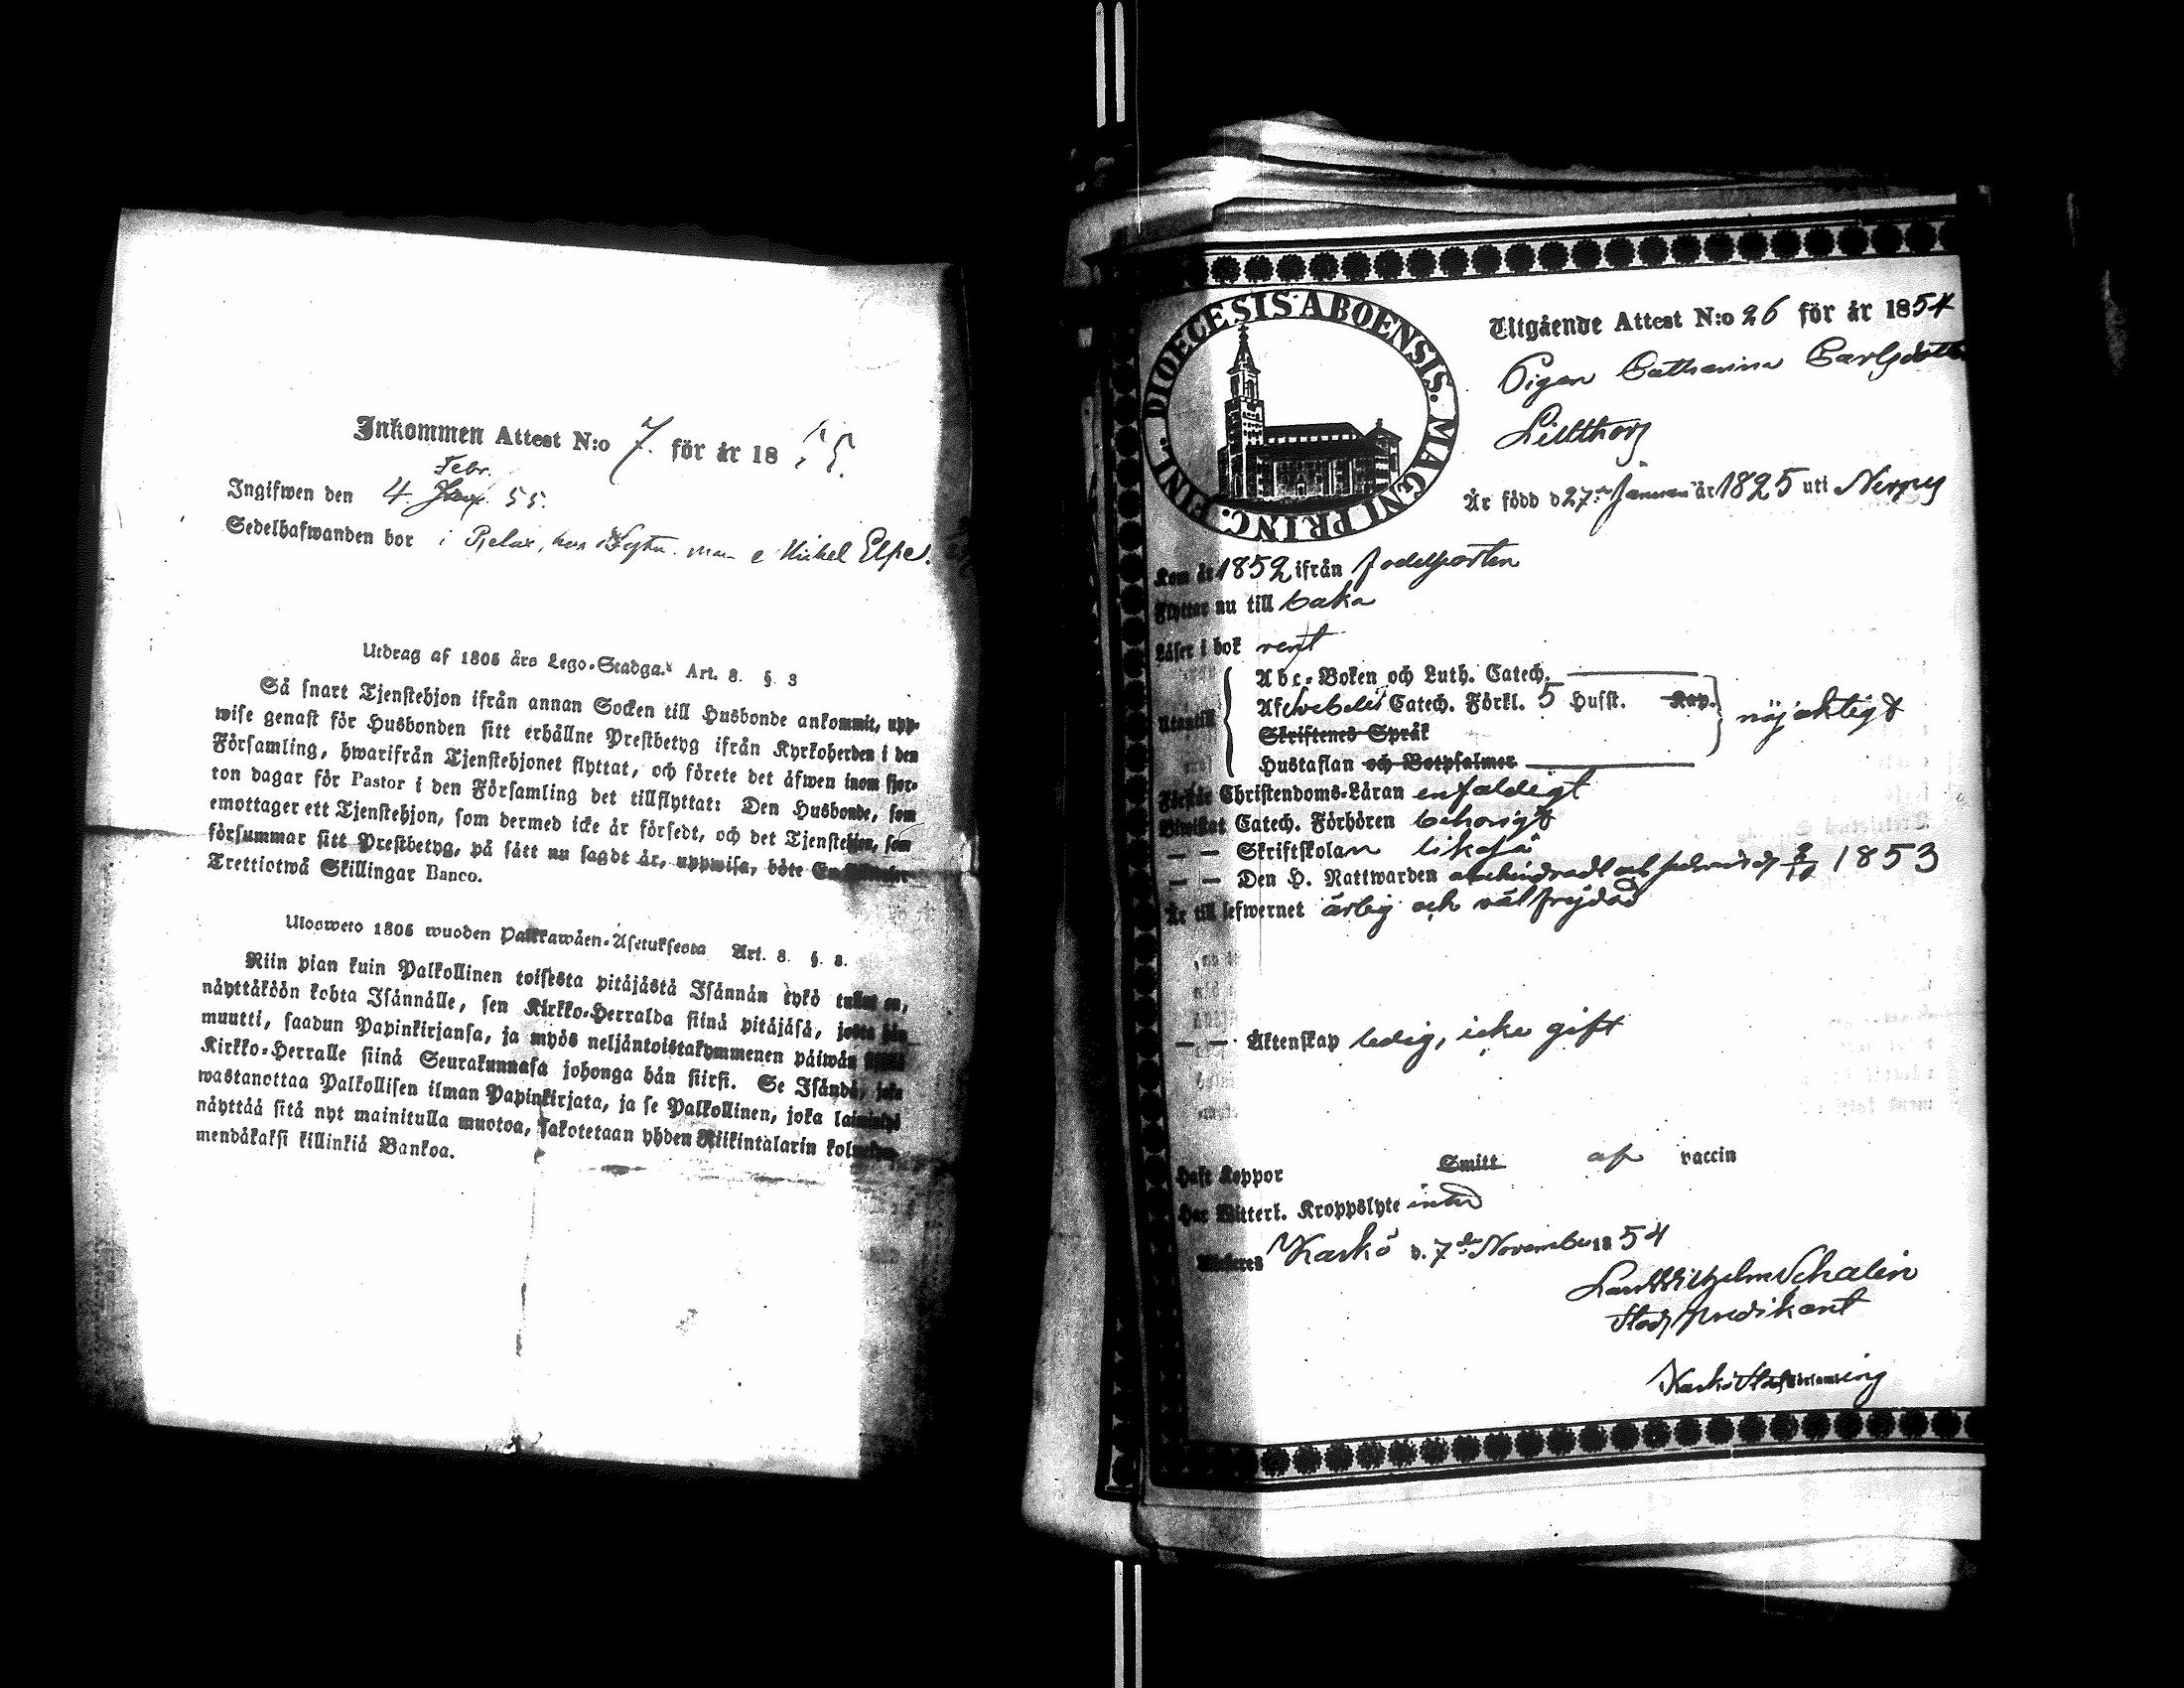 Inkommen Attest N:o 7. för år 18 55.
Febr.
Ingifwen den 4. 55.
Sedelhafwanden bor i Pjelax, hos Mickel Elfs.
Utdrag af 1805 års Lego-Stadga. Art. 8. § 3
Så snart Tjenstehjon ifrån annan Socken till Husbonde ankommit, upp-
wise genast för Husbonden sitt erhållne Prestbetyg ifrån Kyrkoherden i den
Församling, hwarifrån Tjenstehjonet flyttat, och förete det äfwen inom fjor-
ton dagar för Pastor i den Församling det tillflyttat: Den Husbonde, som
emottager ett Tjenstehjon, som dermed icke är försedt, och det Tjenstehjon, som
försummar sitt Prestbetyg, på sätt nu sagdt är, uppwisa, böte En Riksdaler
Trettiotwå Skillingar Banco.
Ulosweto 1805 wuoden Palkkawäen-Asetuksesta Art. 8. §. 8.
Niin pian kuin Palkollinen toisesta pitäjästä Isännän tykö tullut on,
näyttäköön kohta Isännälle, sen Kirkko-Herralda siinä pitäjäsä, josta hän
muutti, saadun Papinkirjansa, ja myös neljäntoistakymmenen päiwän sisällä
Kirkko-Herralle siinä Seurakunnasa johonga hän siirsi. Se Isändä, joka
wastanottaa Palkollisen ilman Papinkirjata, ja se Palkollinen, joka laiminlyö
näyttää sitä nyt mainitulla muotoa, sakotetaan yhden Riikintalarin kolmekym-
mendäkaksi killinkiä Bankoa.
DIOECESIS ABOENSIS. MAGNI PRINC. FINL.
Utgående Attest N:o 26 för år 1854
Pigan Catharina Carlsdotter
Lillthors
Är född d 27de Januari år 1825 uti Nerpes
Kom år 1852 ifrån födelseorten
Flyttar nu till baka
Läser i bok rent
Abc-Boken och Luth. Catech.
Utantill Af Svebelii Catech. Förkl. 5 Husst. Kap. nöjaktigt
Skriftenes Språk
Hustaflan och Botpsalmer
Förstår Christendoms-Läran enfaldigt
Biwistat Catech. Förhören behörigt
— — Skriftskolan likaså
— — Den H. Nattwarden 1853
Är till lefwernet ärlig och välfrejdad
— — Äktenskap ledig, icke gift
Haft Koppor Smitt af vaccin
Har Witterl. Kroppslyte intet
Attesteres Kaskö d. 7de November 1854
Carl Wilhelm Schalin
Stads predikant
Kaskö Stads församling